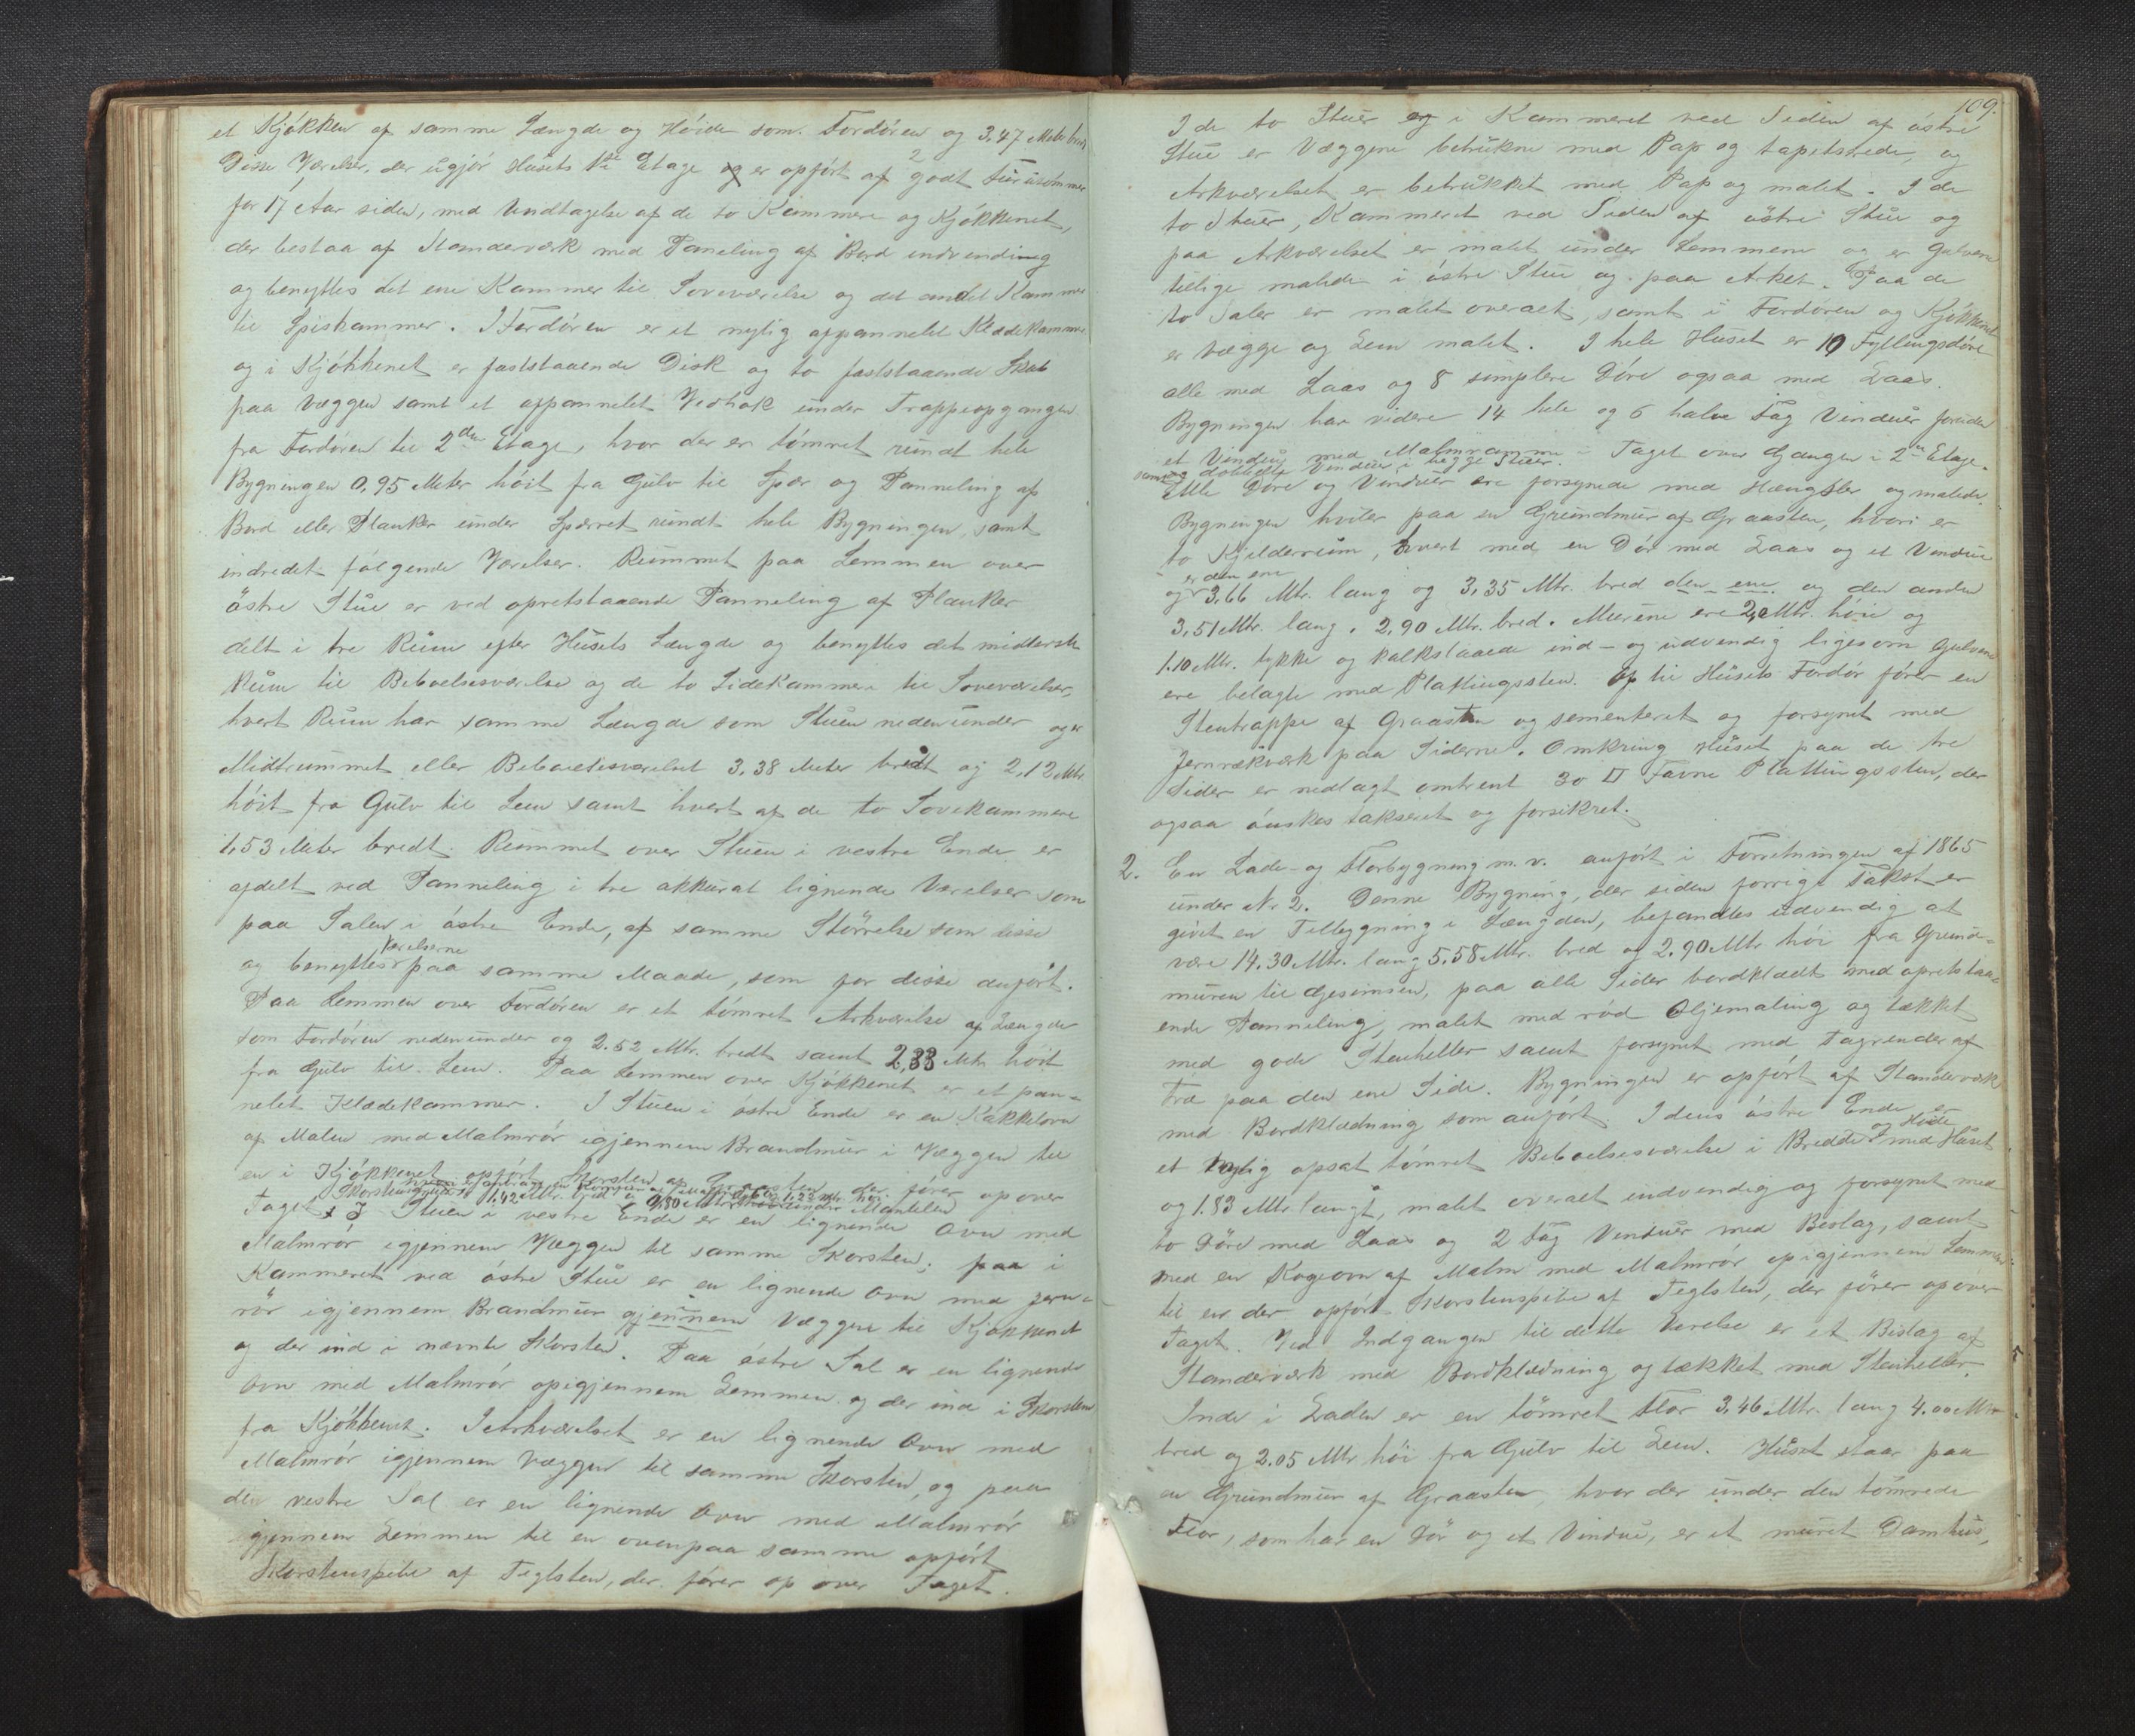 et Kjøkken af samme Længde og Høide som Fordøren og 3,47 Meter bredt
Disse Værelser, der ugjør Husets 1ste Etage og er opført af 2" godt Furutømmer
for 17 Aar siden, med Undtagelse af de to Kammere og Kjøkkenet,
der bestaa af Standerværk med Paneling af Bord indvendig
og benyttes det ene Kammer til Soveværelse og det andet Kammer
til Spiskammer. I Fordøren er et nylig oppannelet Klædekammer
og i Kjøkkenet er faststaaende Disk og to faststaaende Skab
paa Væggen samt et oppannelet Vedhok under Trappeopgangen
fra Fordøren til 2den Etage, hvor der er tømret rundt hele
Bygningen 0,95 Meter høit fra Gulv til Spær og Panneling af
Bord eller Planker under Spærret rundt hele Bygningen, samt
indredet følgende Værelser. Rummet paa Lemmen over
østre Stue er ved opretstaaende Panneling af Planker
delt i tre Rum efter Husets Længde og benyttes det midterste
Rum til Beboelsesværelse og de to Sidekammere til Soveværelser,
hvert Rum har samme Længde som Stuen nedenunder og er
Midtrummet eller Beboelsesværelset 3,38 Meter bredt og 2,12 Mtr
høit fra Gulv til Lem samt hvert af de to Sovekammere
1,53 Meter bredt. Rummet over Stuen i vestre Ende er
afdelt ved Panneling i tre akkurat lignende Værelser som
paa Salen i østre Ende, af samme Størrelse som disse
og benyttes Værelserne paa samme Maade, som for disse anført.
Paa Lemmen over Fordøren er et tømret Arkværelse af Længde
som Fordøren nedenunder og 2.52 Mtr. bredt samt 2,33 Mtr høit
fra Gulv til Lem. Paa Lemmen over Kjøkkenet er et pan-
nelet Klædekammer. I Stuen i østre Ende er en Kakkelovn
af Malm med Malmrør igjennem Brandmur i Væggen til
en i Kjøkkenet opført Skorsten af Graasten der fører op over
Skorstensgruen 1.42 Mtr. bred 0,80 Mtr. 1.23 Mtr. høi under Mantelen
Taget. I Stuen i vestre Ende er en lignende Ovn med
Malmrør igjennem Væggen til samme Skorsten; paa i
Kammeret ved østre Stue er en lignende Ovn med Jern-
rør igjennem Brandmur gjennem Væggen til Kjøkkenet
og der ind i nævnte Skorsten. Paa østre Sal er en lignende
Ovn med Malmrør opigjennem Lemmen og der ind i Skorsten
fra Kjøkkenet. I Arkværelset er en lignende Ovn med
Malmrør igjennem Væggen til samme Skorsten, og paa
den vestre Sal er en lignende Ovn med Malmrør
igjennem Lemmen til en ovenpaa samme opført
Skorstenspibe af Teglsten, der fører op over Taget.
109.
I de to Stuer og i Kammeret ved Siden af østre
Stue er Væggene betrukne med Pap og tapetserede, og
Arkværelset er betrukket med Pap og malet. I de
to Stuer, Kammeret ved Siden af østre Stue og
paa Arkværelset er malet under Lemmene og er Gulvene
tillige malede i østre Stue og paa Arket. Paa de
to Saler er malet overalt, samt i Fordøren og Kjøkkenet
er Vægge og Lem malet. I hele Huset er 10 Fyllingsdøre
alle med Laas og 8 simplere Døre ogsaa med Laas.
Bygningen har videre 14 hele og 6 halve Fag Vinduer foruden
et Vindu med Malmramme i Taget over Gangen i 2den Etage.
samt dobbelte Vinduer i begge Stuer.
Alle Døre og Vinduer ere forsynede med Hængsler og malede.
Bygningen hviler paa en Grundmur af Graasten, hvori er
to Kjelderrum, hvert med en Dør med Laas og et Vindue
er den ene
og 3,66 Mtr. lang og 3,35 Mtr. bred den ene og den anden
3,51 Mtr. lang, 2,90 Mtr. bred. Murene ere 2,0 Mtr. høie og
1.10 Mtr. tykke og kalkslaaede ind- og udvendig ligesom Gulvene
ere belagte med Plattingssten. Op til Husets Fordør fører en
Stentrappe af Graasten og sementeret og forsynet med
Jernrækværk paa Siderne. Omkring Huset paa de tre
Sider er nedlagt omtrent 30 □ Favne Plattingssten, der
ogsaa ønskes takseret og forsikret.
2. En Lade- og Florbygning m.v. anført i Forretningen af 1865
under Nr 2. Denne Bygning, der siden forrige Takst er
givet en Tilbygning i Længden, befandtes udvendig at
være 14.30 Mtr. lang 5,58 Mtr. bred og 2.90 Mtr høi fra Grund-
muren til Gesimsen, paa alle Sider bordklædt med opretstaa-
ende Panneling, malet med rød Oljemaling og tækket
med gode Stenheller samt forsynet med Tagrender af
Træ paa den ene Side. Bygningen er opført af Standerværk
med Bordklædning som anført. I dens østre Ende er
et nylig opsat tømret Beboelsesværelse i Bredde og Høide med Huset
og 1.83 Mtr langt, malet overalt indvendig og forsynet med
to Døre med Laas og 2 Fag Vinduer med Beslag, samt
med en Kogeovn af Malm med Malmrør opigjennem Lemmen
til en der opført Skorstenspibe af Teglsten, der fører op over
Taget. Ved Indgangen til dette Værelse er et Bislag af
Standerværk med Bordklædning og tækket med Stenheller.
Inde i Laden er en tømret Flor 3,46 Mtr. lang 4.00 Mtr
bred og 2.05 Mtr høi fra Gulv til Lem. Huset staar paa
en Grundmur af Graasten, hvor der under den tømrede
Flor, som har en Dør og et Vindue, er et muret Damhus,